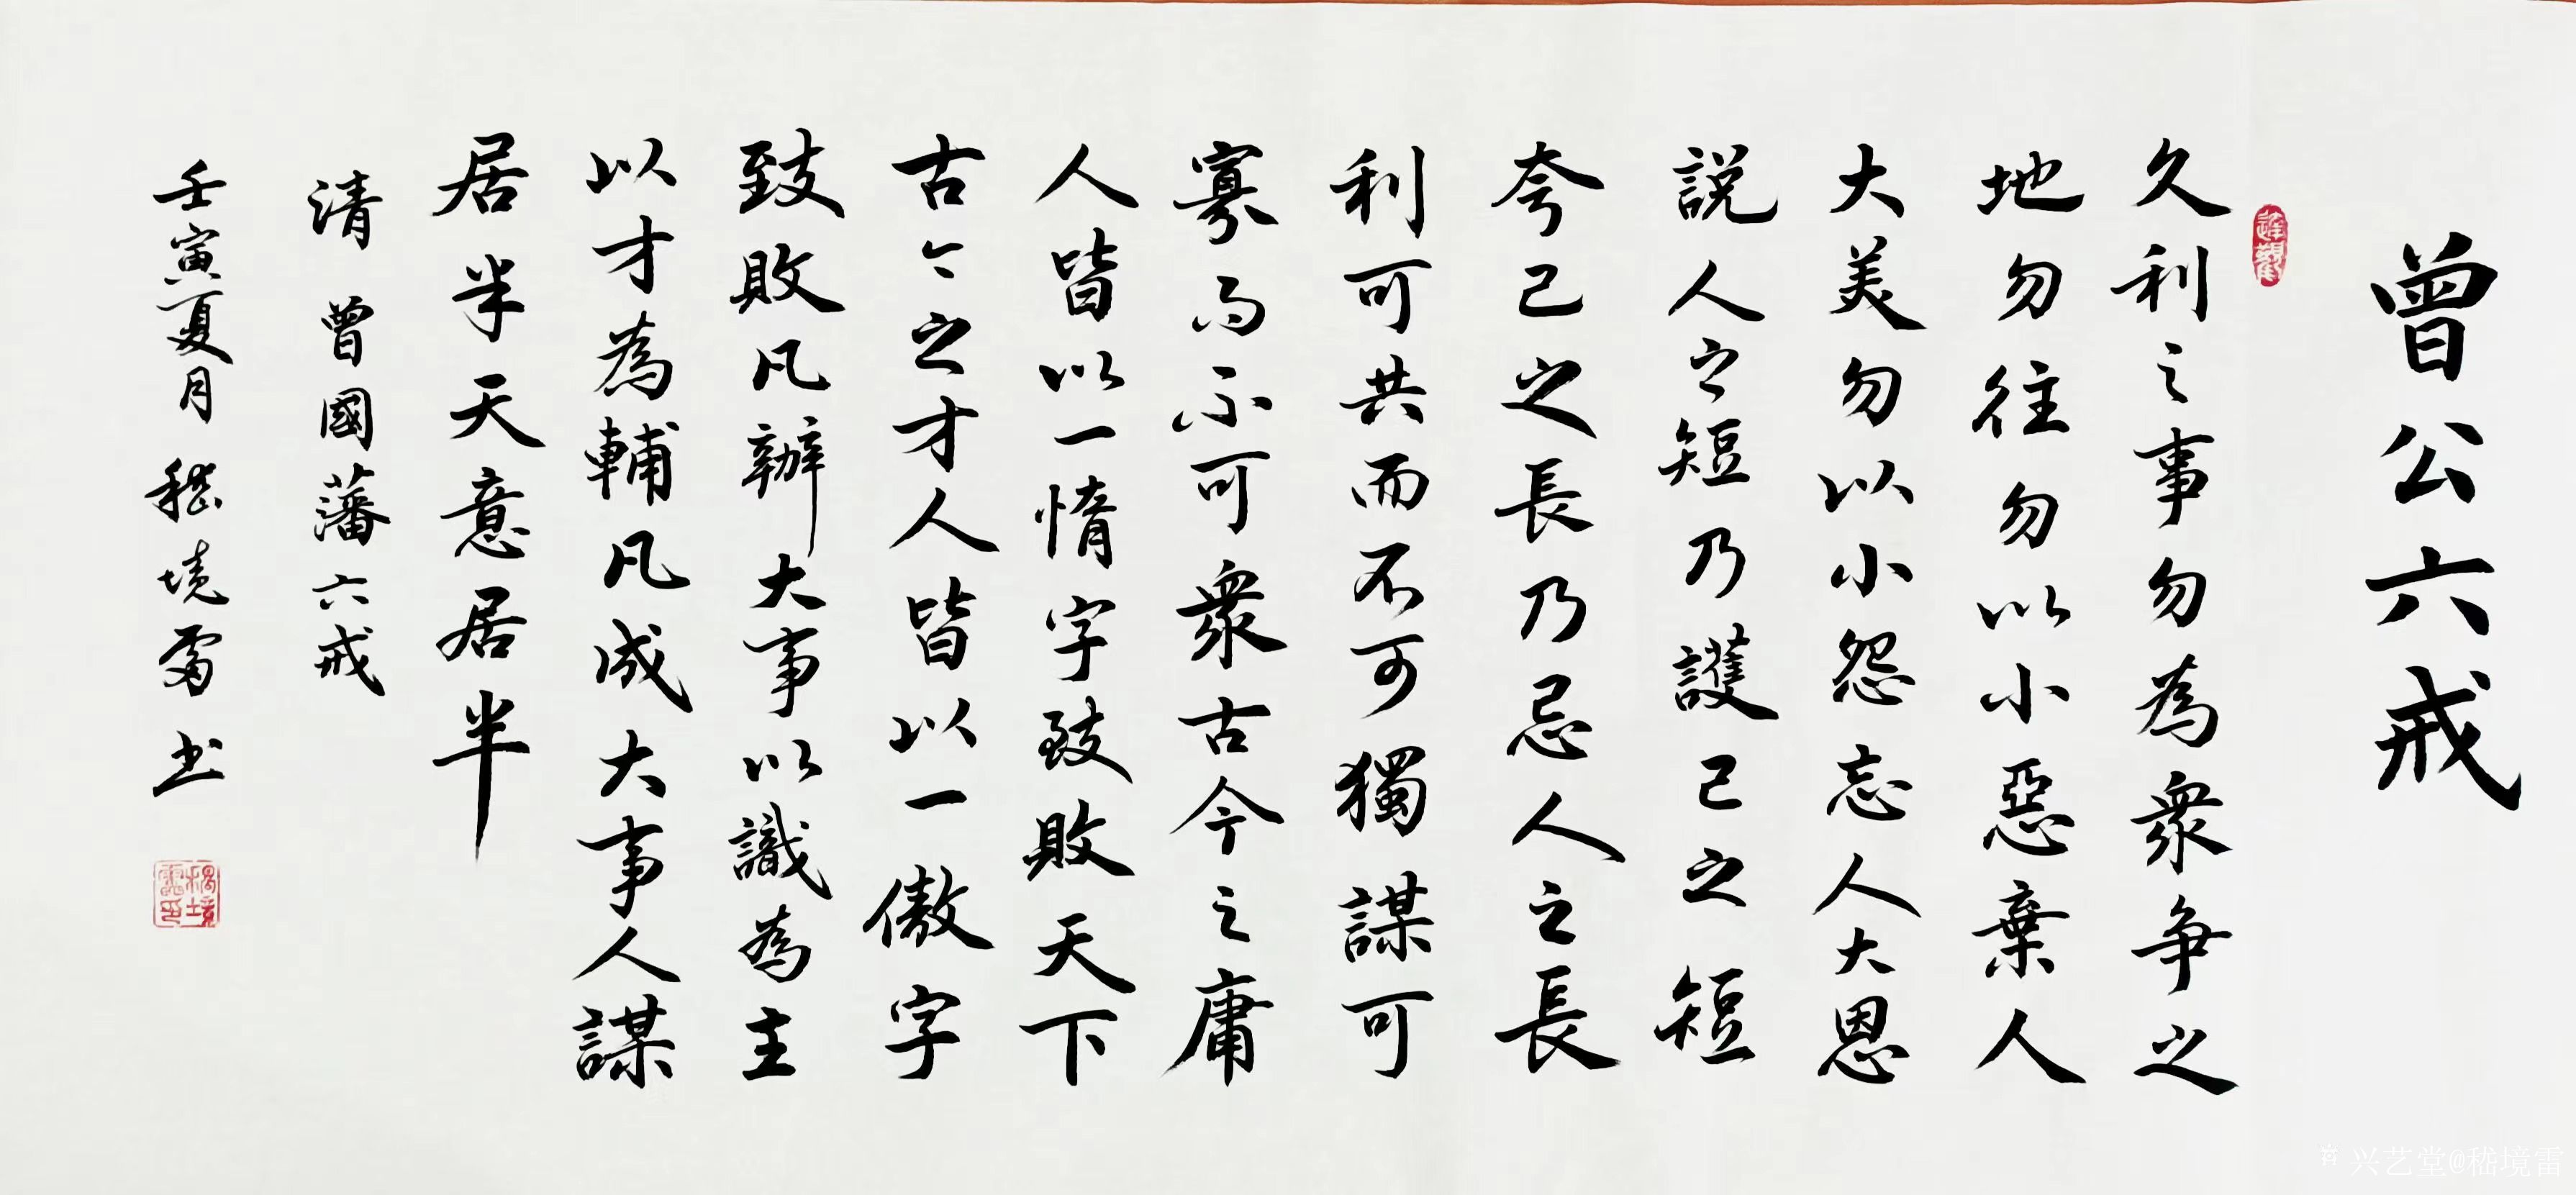 曾公六戒
久利之事勿為衆争之
地勿往勿以小惡棄人
大美勿以小怨忘人大恩
説人之短乃護己之短
夸己之長乃忌人之長
利可共而不可獨謀可
寡而不可衆古今之庸
人皆以一惰字致敗天下
古今之才人皆以一傲字
致敗凡辦大事以識為主
以才為輔凡成大事人謀
居半天意居半
清 曾國藩六戒
壬寅夏月 嵇境雷书
嵇境雷印
兴艺堂@嵇境雷